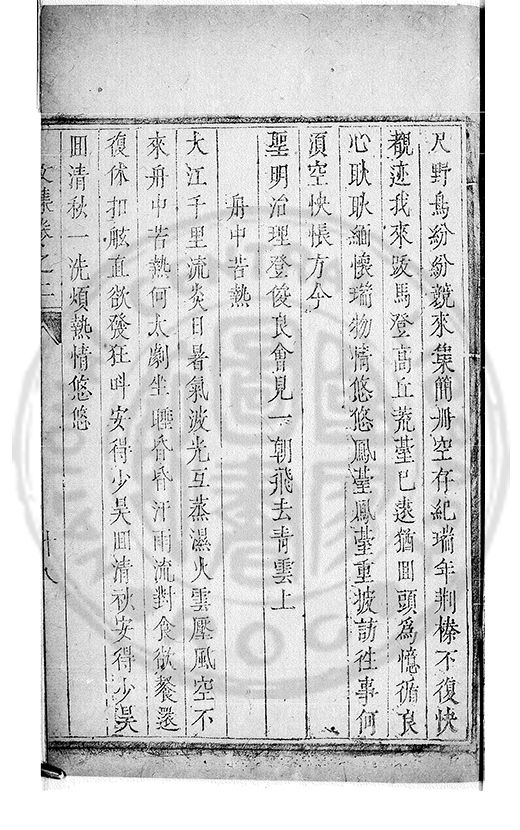 尺野鳥紛紛競來集簡册空存紀瑞年荆榛不復快
覩迹我來跋馬登高丘荒䑓已遠猶囬頭爲憶循良
心耿耿緬懷瑞物情悠悠鳳䑓鳳䑓重披訪往事何
湏空怏悵方今
聖明治理登俊良會見一朝飛去青雲上
舟中苦熱
大江千里流炎日暑氣波光互蒸濕火雲壓風空不
來舟中苦熱何太劇坐睡昏昏汗雨流對食欲餐還
復休扣舷直欲發狂呌安得少昊囬清秋安得少昊
囬清秋一洗煩熱情悠悠
文集卷之二
十八